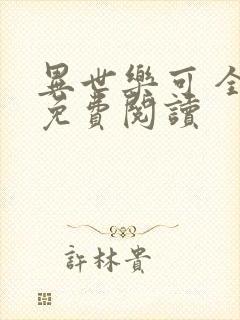 異世樂可 全
免費閱讀
許林貴